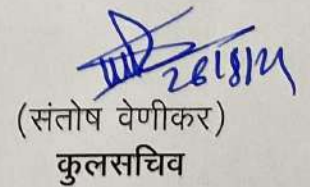 26/8/21
(संतोष वेणीकर)
कुलसचिव